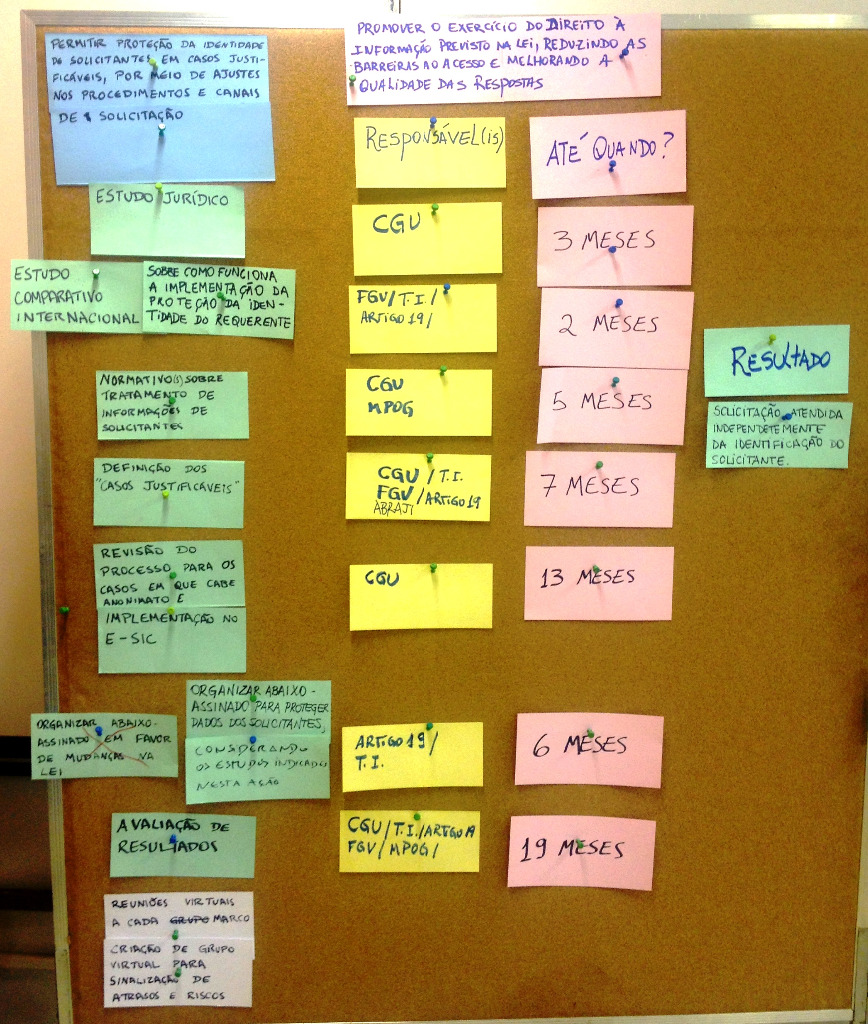 PERMITIR PROTEÇÃO DA IDENTIDADE
DE SOLICITANTES EM CASOS JUSTI-
FICÁVEIS, POR MEIO DE AJUSTES
NOS PROCEDIMENTOS E CANAIS
DE SOLICITAÇÃO
PROMOVER O EXERCÍCIO DO DIREITO À
INFORMAÇÃO PREVISTO NA LEI, REDUZINDO AS
BARREIRAS AO ACESSO E MELHORANDO A
QUALIDADE DAS RESPOSTAS
RESPONSÁVEL(IS)
ATÉ QUANDO?
ESTUDO JURÍDICO
CGU
3 MESES
ESTUDO
COMPARATIVO
INTERNACIONAL
SOBRE COMO FUNCIONA
A IMPLEMENTAÇÃO DA
PROTEÇÃO DA IDEN-
TIDADE DO REQUERENTE
FGV/T.I./
ARTIGO 19/
2 MESES
RESULTADO
SOLICITAÇÃO ATENDIDA
INDEPENDETEMENTE
DA IDENTIFICAÇÃO DO
SOLICITANTE.
NORMATIVO(S) SOBRE
TRATAMENTO DE
INFORMAÇÕES DE
SOLICITANTES
CGU
MPOG
5 MESES
DEFINIÇÃO DOS
"CASOS JUSTIFICÁVEIS"
CGU/T.I.
FGV/ARTIGO 19
ABRAJI
7 MESES
REVISÃO DO
PROCESSO PARA OS
CASOS EM QUE CABE
ANONIMATO E
IMPLEMENTAÇÃO NO
E-SIC
CGU
13 MESES
ORGANIZAR ABAIXO-
ASSINADO EM FAVOR
DE MUDANÇAS NA
LEI
ORGANIZAR ABAIXO-
ASSINADO PARA PROTEGER
DADOS DOS SOLICITANTES,
CONSIDERANDO
OS ESTUDOS INDICADOS
NESTA AÇÃO
ARTIGO 19/
T.I.
6 MESES
AVALIAÇÃO DE
RESULTADOS
CGU/T.I./ARTIGO 19
FGV/MPOG/
19 MESES
REUNIÕES VIRTUAIS
A CADA GRUPO MARCO
CRIAÇÃO DE GRUPO
VIRTUAL PARA
SINALIZAÇÃO DE
ATRASOS E RISCOS